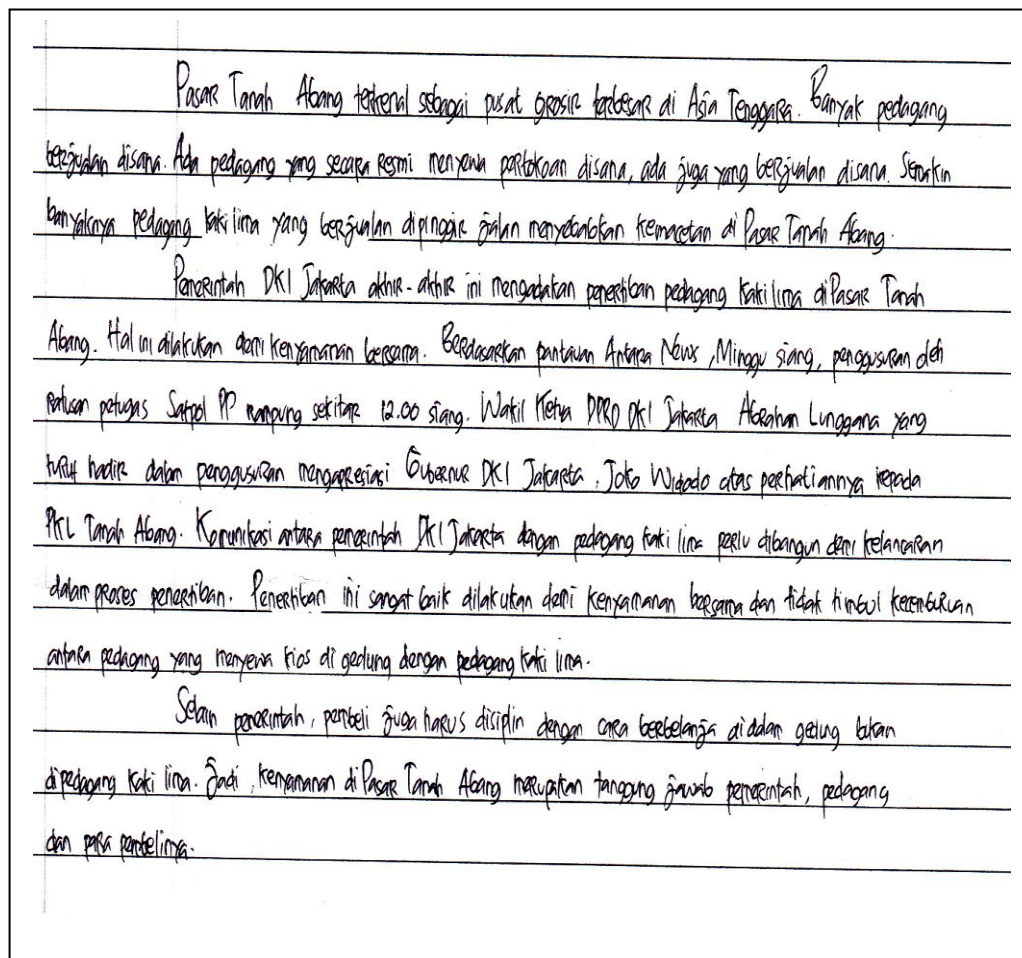 Pasar Tanah Abang terkenal sebagai pusat grosir terbesar di Asia Tenggara. Banyak pedagang
berjualan disana. Ada pedagang yang secara resmi menyewa pertokoan disana, ada juga yang berjualan disana. Semakin
banyaknya pedagang kaki lima yang berjualan dipinggir jalan menyebabkan kemacetan di Pasar Tanah Abang.
Pemerintah DKI Jakarta akhir-akhir ini mengadakan penertiban pedagang kaki lima di Pasar Tanah
Abang. Hal ini dilakukan demi kenyamanan bersama. Berdasarkan pantauan Antara News, Minggu siang, penggusuran oleh
ratusan petugas Satpol PP rampung sekitar 12.00 siang. Wakil Ketua DPRD DKI Jakarta Abraham Lunggana yang
turut hadir dalam penggusuran mengapresiasi Gubernur DKI Jakarta, Joko Widodo atas perhatiannya kepada
PKL Tanah Abang. Komunikasi antara pemerintah DKI Jakarta dengan pedagang kaki lima perlu dibangun demi kelancaran
dalam proses penertiban. Penertiban ini sangat baik dilakukan demi kenyamanan bersama dan tidak timbul kecemburuan
antara pedagang yang menyewa kios di gedung dengan pedagang kaki lima.
Selain pemerintah, pembeli juga harus disiplin dengan cara berbelanja didalam gedung bukan
dipedagang kaki lima. Jadi, kenyamanan di Pasar Tanah Abang merupakan tanggung jawab pemerintah, pedagang
dan para pembelinya.